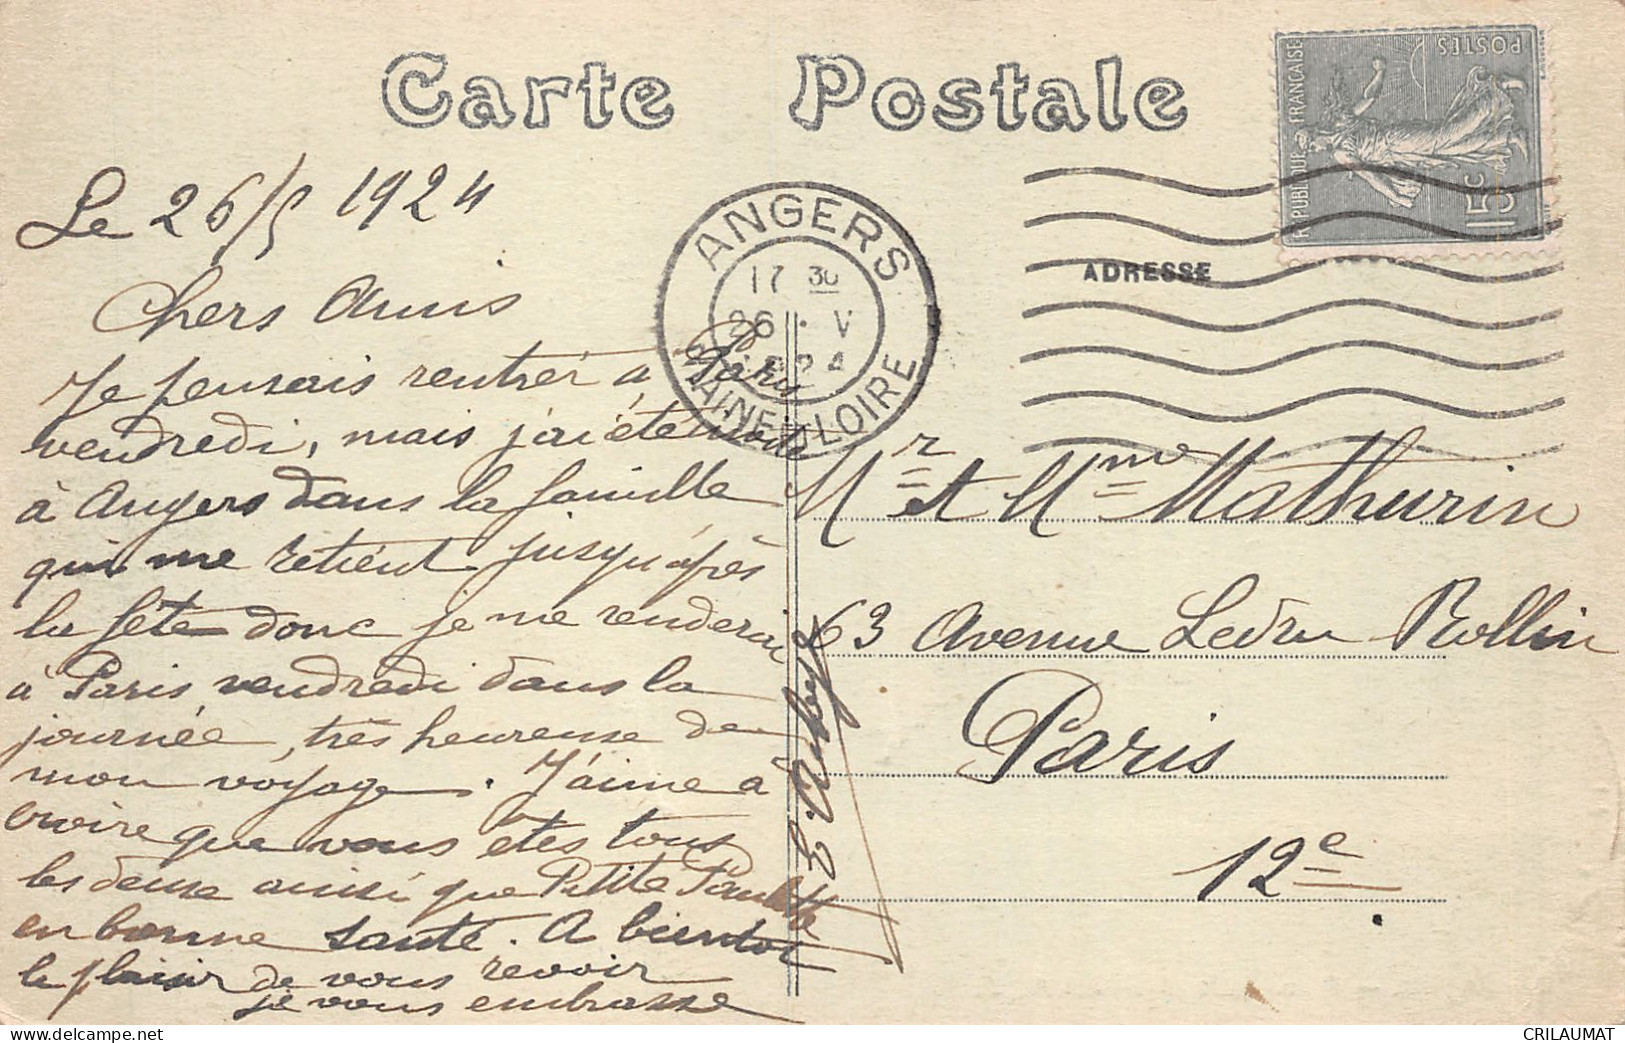 Carte Postale
REPUBLIQUE FRANÇAISE
POSTES
15c
ANGERS
17 30
26 · V
1924
MAINE-ET-LOIRE
ADRESSE
Le 26/5 1924
Chers Amis
Je pensais rentrer à Paris
vendredi, mais j'ai été
à Angers dans la famille
qui me retient jusqu'après
la fête donc je me renderai
à Paris vendredi dans la
journée, très heureuse de
mon voyage. J'aime à
croire que vous êtes tous
les deux ainsi que Petite Paulette
en bonne santé. A bientot
le plaisir de vous revoir
je vous embrasse
Mr et Mme Mathurin
63 Avenue Ledru Rollin
Paris
12e
CRILAUMAT
http://www.delcampe.net